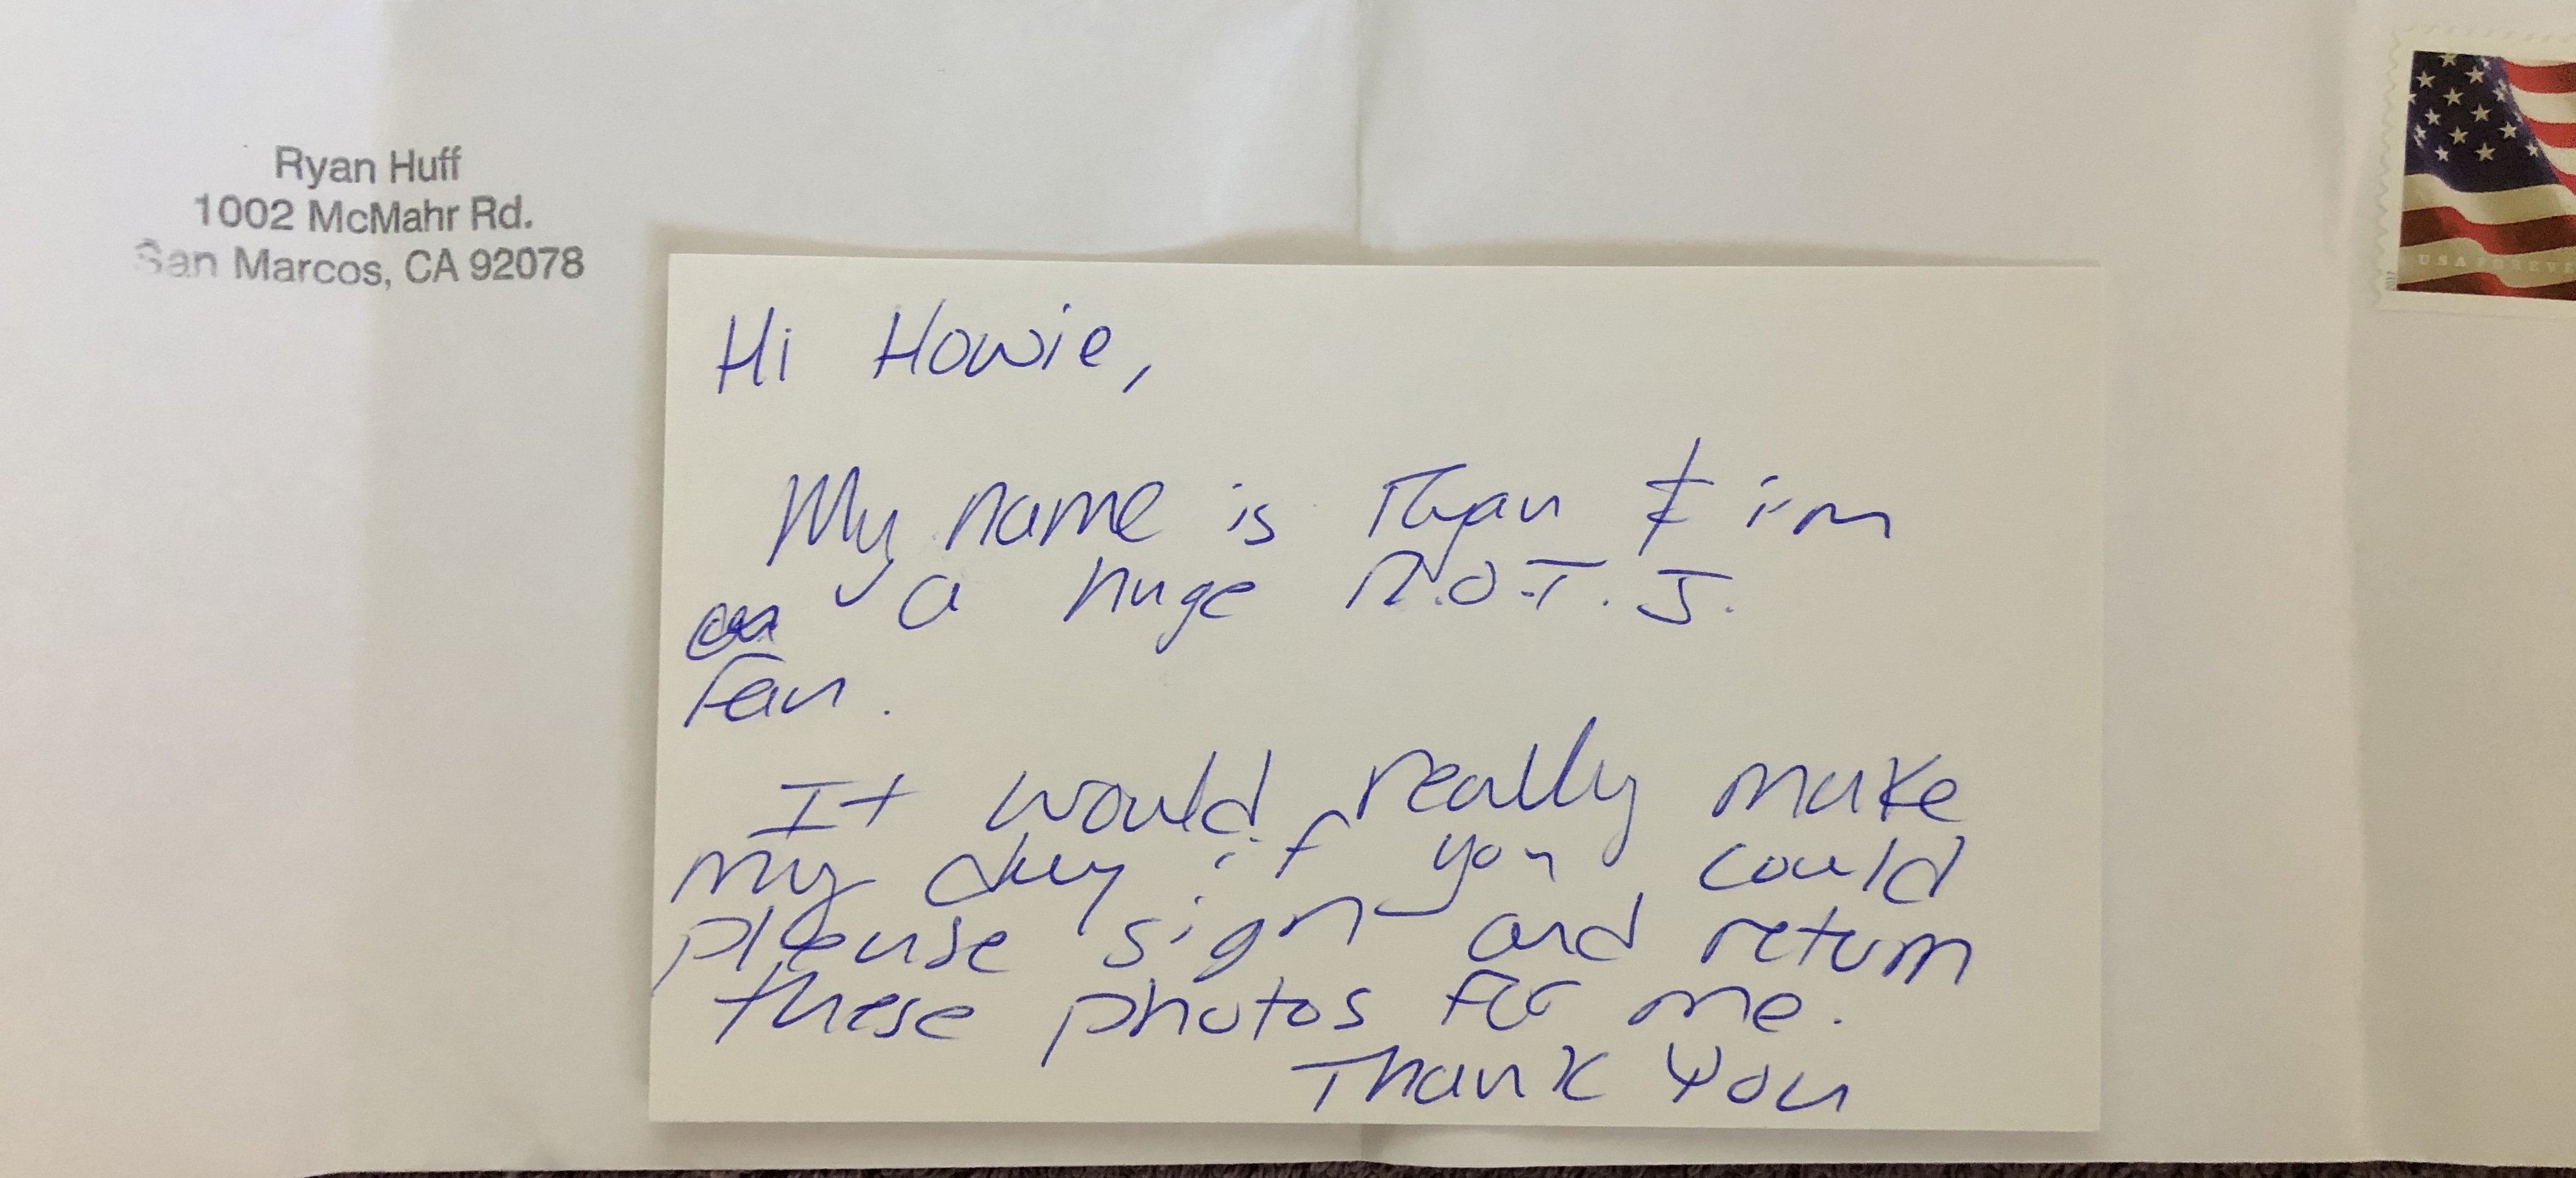 Ryan Huff
1002 McMahr Rd.
San Marcos, CA 92078
USA FOREVE
2017
Hi Howie,
My name is Ryan & i'm
a huge R.O.T.J.
fan.
It would really make
my day if you could
please sign and return
these photos for me.
Thank You